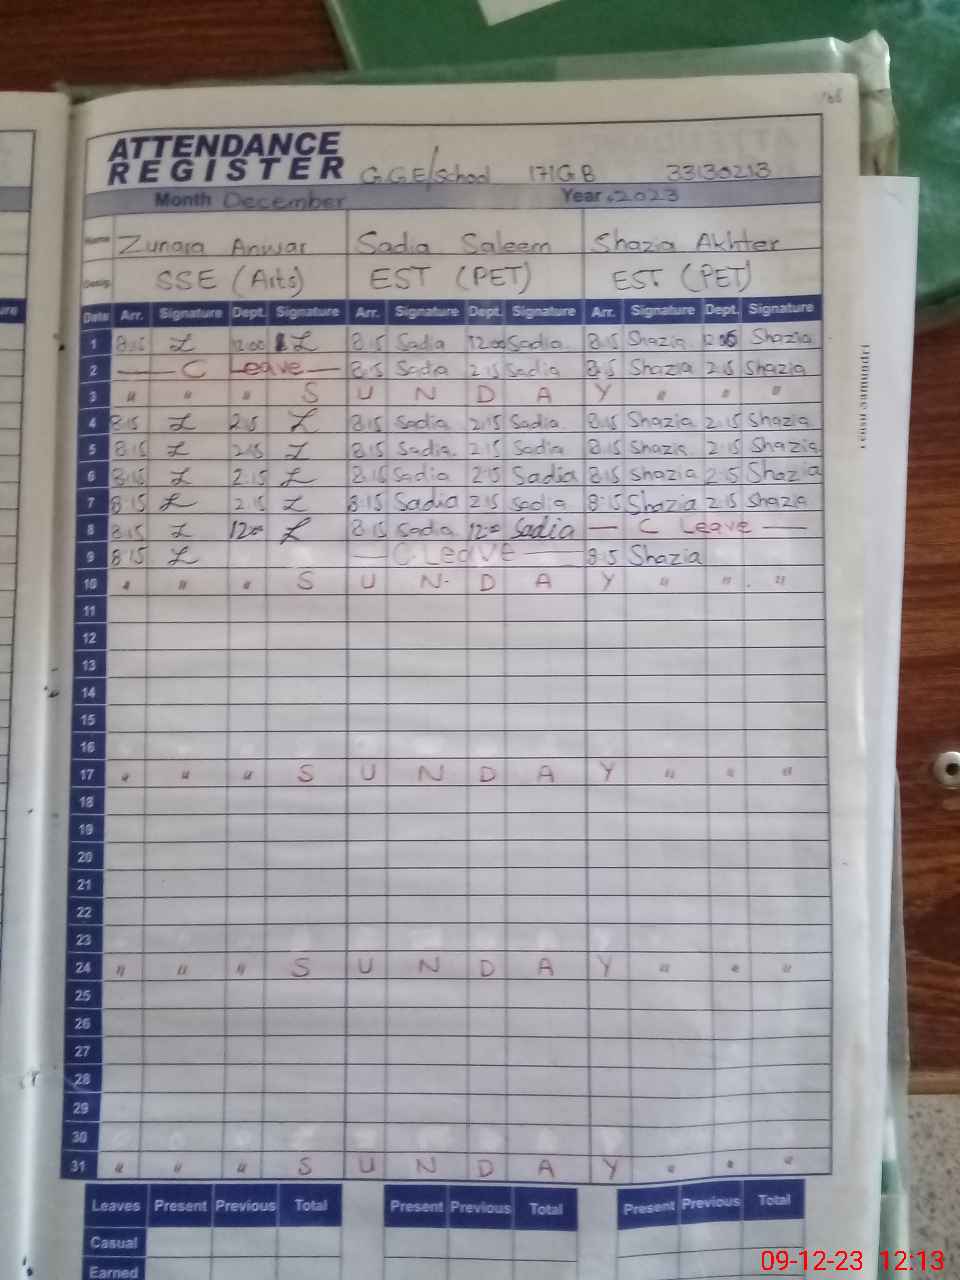 168
ATTENDANCE
REGISTER G.G.E/School 171GB 33130213
Month December Year. 2023
Name Zunara Anwar Sadia Saleem Shazia Akhter
Desig. SSE (Arts) EST (PET) EST (PET)
Date Arr. Signature Dept. Signature Arr. Signature Dept. Signature Arr. Signature Dept. Signature
1 8:15 Z 12:00 Z 8:15 Sadia 12:00 Sadia 8:15 Shazia Shazia
2 — C Leave — 8:15 Sadia 2:15 Sadia 8:15 Shazia 2:15 Shazia
3 " " " S U N D A Y " " "
4 8:15 Z 2:15 Z 8:15 Sadia 2:15 Sadia 8:15 Shazia 2:15 Shazia
5 8:15 Z 2:15 Z 8:15 Sadia 2:15 Sadia 8:15 Shazia 2:15 Shazia
6 8:15 Z 2:15 Z 8:15 Sadia 2:15 Sadia 8:15 Shazia 2:15 Shazia
7 8:15 Z 2:15 Z 8:15 Sadia 2:15 Sadia 8:15 Shazia 2:15 Shazia
8 8:15 Z 12:00 Z 8:15 Sadia 12:00 Sadia — C Leave —
9 8:15 Z — C. Leave — 8:15 Shazia
10 " " " S U N D A Y " " "
11
12
13
14
15
16
17 " " " S U N D A Y " " "
18
19
20
21
22
23
24 " " " S U N D A Y " " "
25
26
27
28
29
30
31 " " " S U N D A Y " " "
Leaves Present Previous Total Present Previous Total Present Previous Total
Casual
Earned
09-12-23 12:13